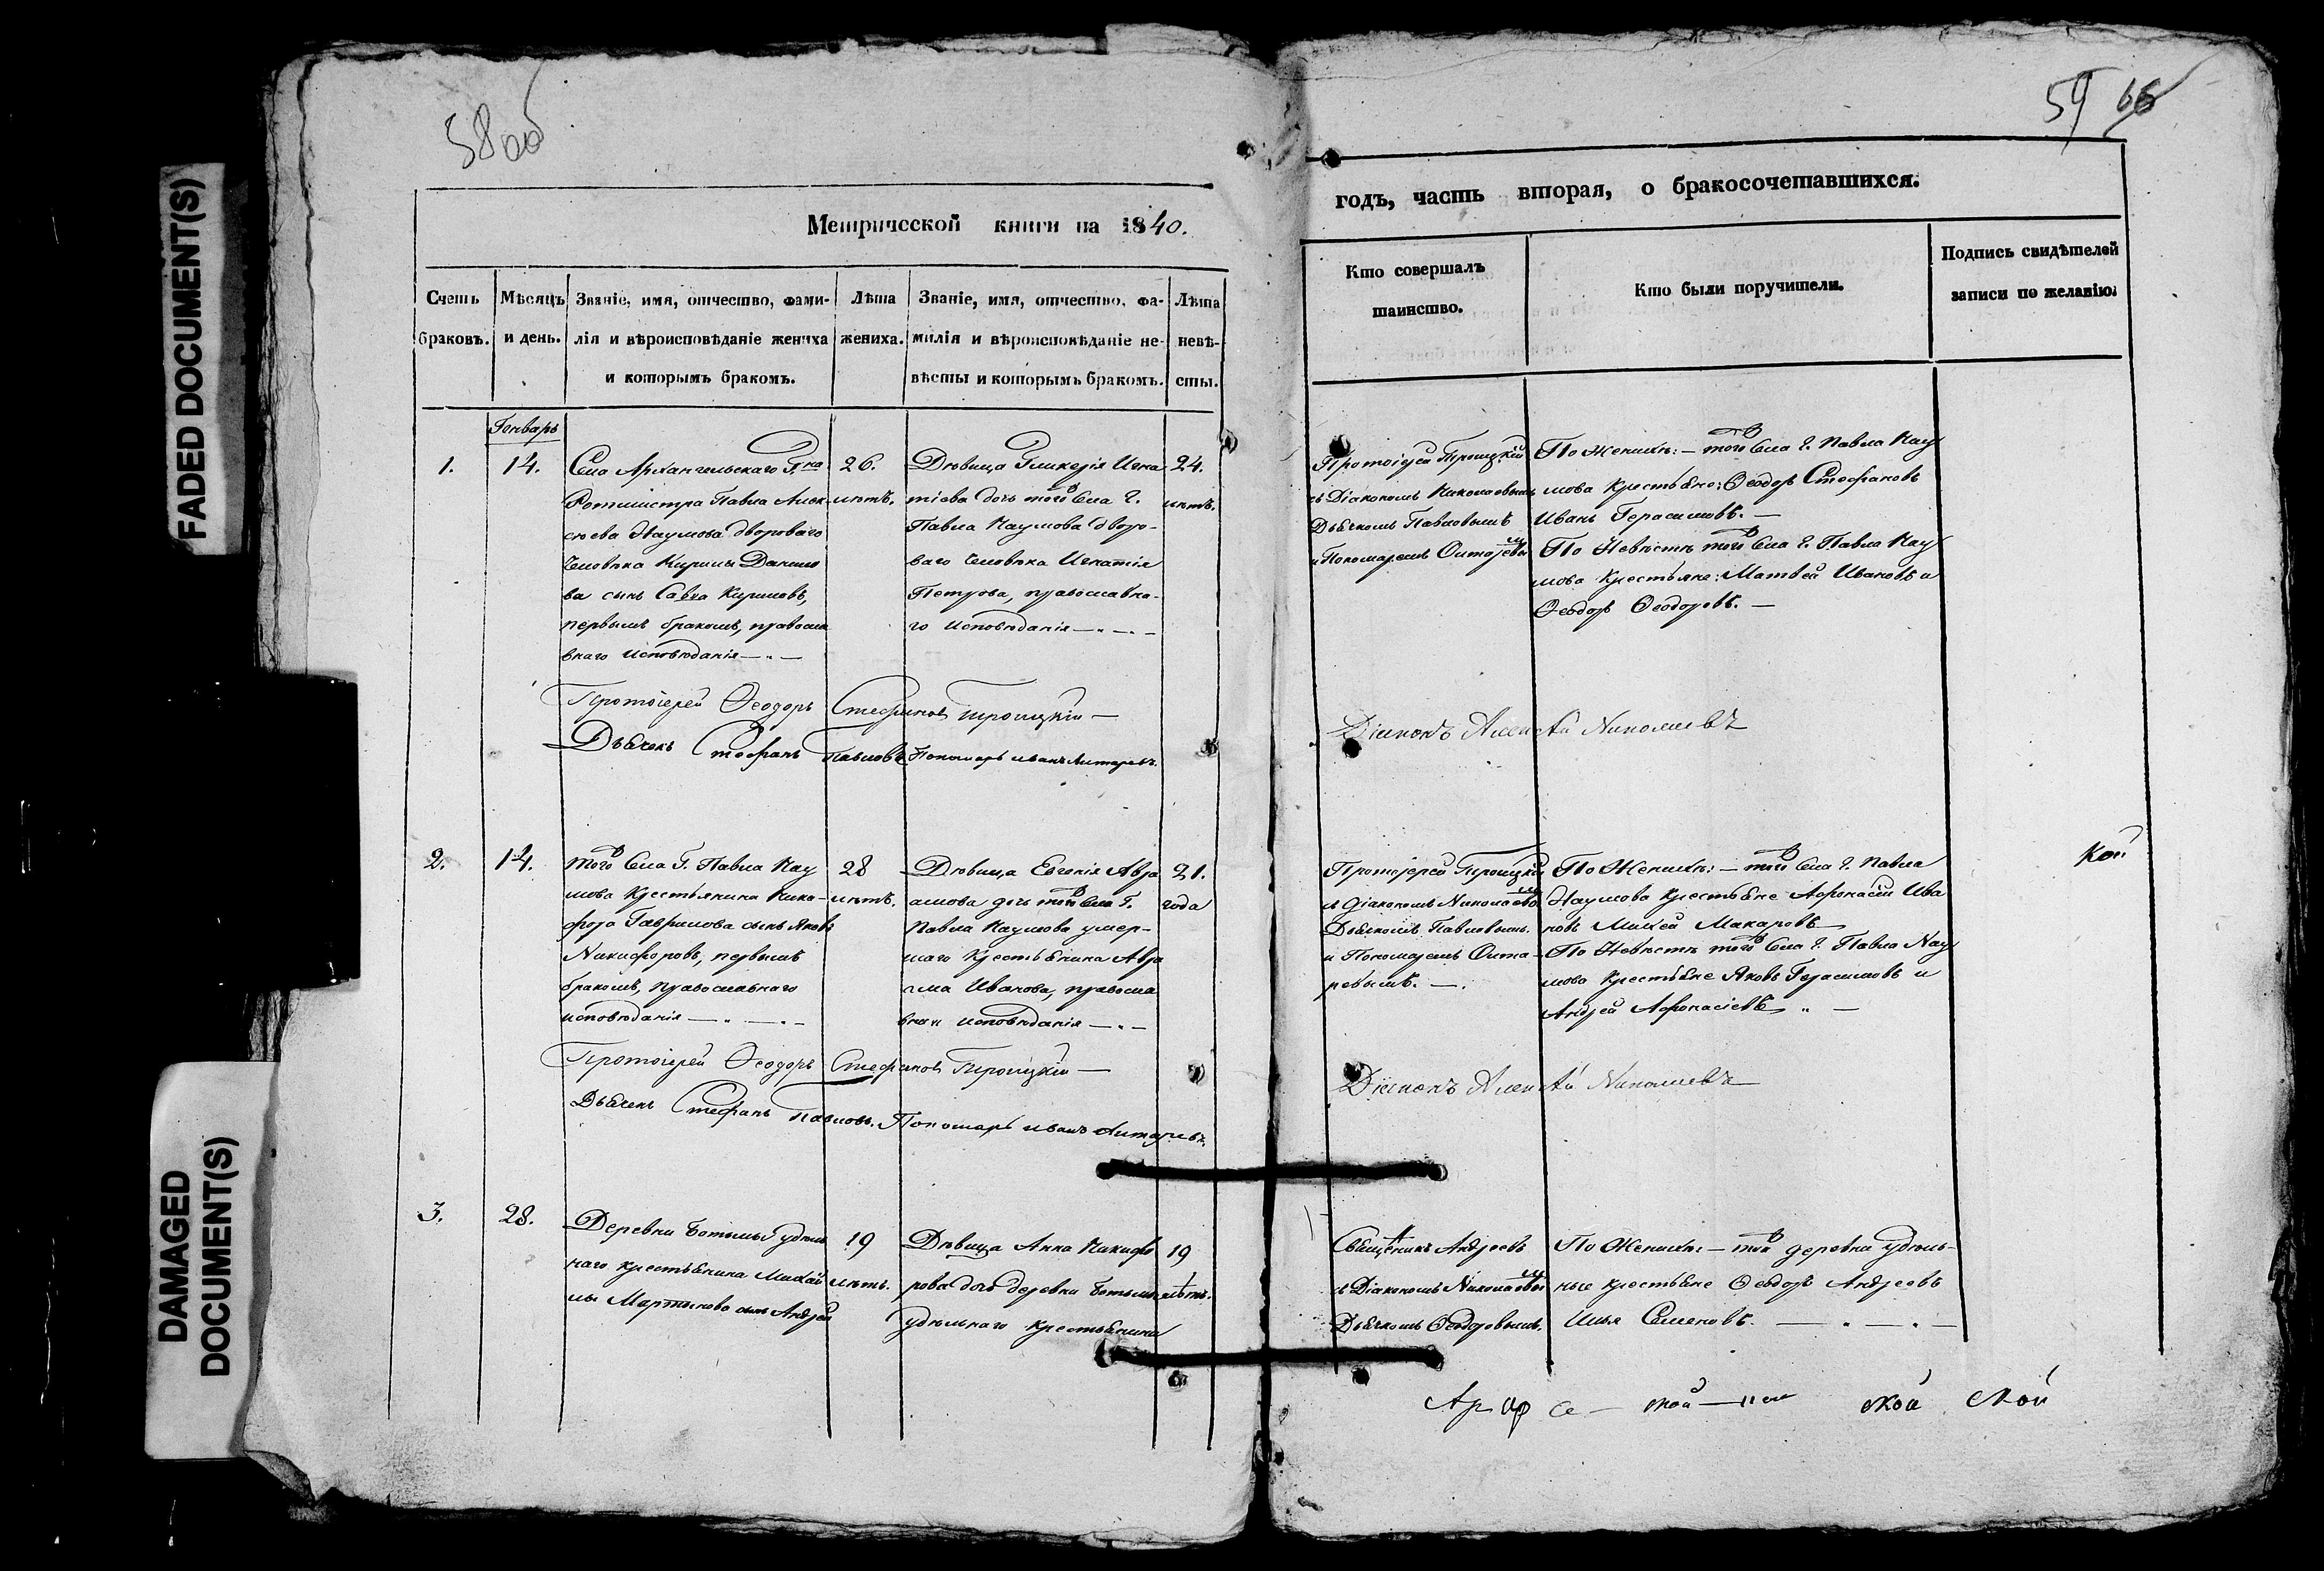 FADED DOCUMENT(S)
DAMAGED DOCUMENT(S)
58об
Метрической книги на 1840.
Счетъ браковъ.
Мѣсяцъ и день.
Званіе, имя, отчество, фами-
лія и вѣроисповѣданіе жениха
и которымъ бракомъ.
Лѣта
жениха.
Званіе, имя, отчество, фа-
милія и вѣроисповѣданіе не-
вѣсты и которымъ бракомъ.
Лѣта
невѣ-
сты.
Генварь
1.
14.
Села Архангельскаго Г.на
Ротмистра Павла Алек
сѣева Наумова двороваго
человѣка Кирилы Данило
ва сынъ Савва Кириловъ,
первымъ бракомъ, правосла
внаго исповѣданія
26.
лѣтъ.
Дѣвица Гликерія Игна
тіева дочь того села Г.
Павла Наумова дворо-
ваго человѣка Игнатія
Петрова, православна-
го исповѣданія
24.
лѣтъ.
Протоіерей Ѳеодоръ Стефановъ Троицкій
Дьячекъ Стефанъ Павловъ Пономарь Иванъ
2.
14.
того села Г. Павла Нау
мова крестьянина Ники-
фора Гаврилова сынъ Яковъ
Никифоровъ, первымъ
бракомъ, православнаго
исповѣданія
28
лѣтъ.
Дѣвица Евгенія Авра
амова дочь того села Г.
Павла Наумова умер-
шаго крестьянина Авра
ама Иванова, правосла
внаго исповѣданія
21.
года
Протоіерей Ѳеодоръ Стефановъ Троицкій
Дьячекъ Стефанъ Павловъ. Пономарь Иванъ
3.
28.
Деревни удѣль
наго крестьянина Михай
лы Мартынова сынъ Андрей
19
лѣтъ.
Дѣвица Анна Никифо
рова дочь деревни
удѣльнаго крестьянина
19
лѣтъ.
59 66
годъ, часть вторая, о бракосочетавшихся.
Кто совершалъ
таинство.
Кто были поручители.
Подпись свидѣтелей
записи по желанію.
Протоіерей Троицкій
съ Діакономъ Николаевымъ
Дьячкомъ Павловымъ
и Пономаремъ
По Женихѣ: — того села Г. Павла Нау
мова крестьяне: Ѳеодоръ Стефановъ
Иванъ Герасимовъ. —
По Невѣстѣ того села Г. Павла Нау
мова крестьяне: Матвей Ивановъ и
Ѳеодоръ Ѳеодоровъ. —
Діаконъ Алексѣй Николаевъ
Протоіерей Троицкій
съ Діакономъ Николаевымъ
Дьячкомъ Павловымъ.
и Пономаремъ
По Женихѣ: — того села Г. Павла
Наумова крестьяне Афонасій Ива
новъ Михей Макаровъ
По Невѣстѣ того села Г. Павла Нау
мова крестьяне Яковъ Герасимовъ и
Андрей Афонасіевъ
кой
Діаконъ Алексѣй Николаевъ
Священникъ Андреевъ
съ Діакономъ Николаевымъ
Дьячкомъ Ѳеодоровымъ.
По Женихѣ: — той деревни удѣль-
ные крестьяне Ѳеодоръ Андреевъ
Илья Семеновъ.